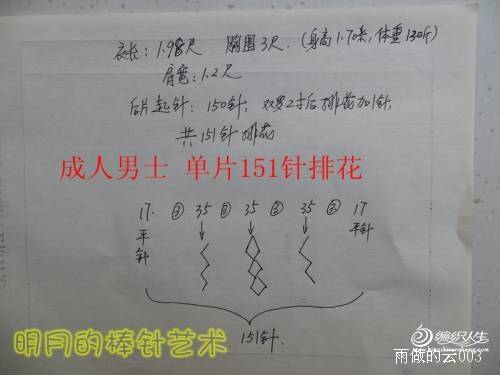 衣长:1.98尺 胸围3尺.(身高1.70米,体重130斤)
肩宽:1.2尺
后片起针:150针,双罗2寸后排花加1针,
共151针排花
成人男士 单片151针排花
17. ③ 35 ③ 35 ③ 35 ③ 17
平针 平针
151针.
明月的棒针艺术
编织人生
雨做的云003